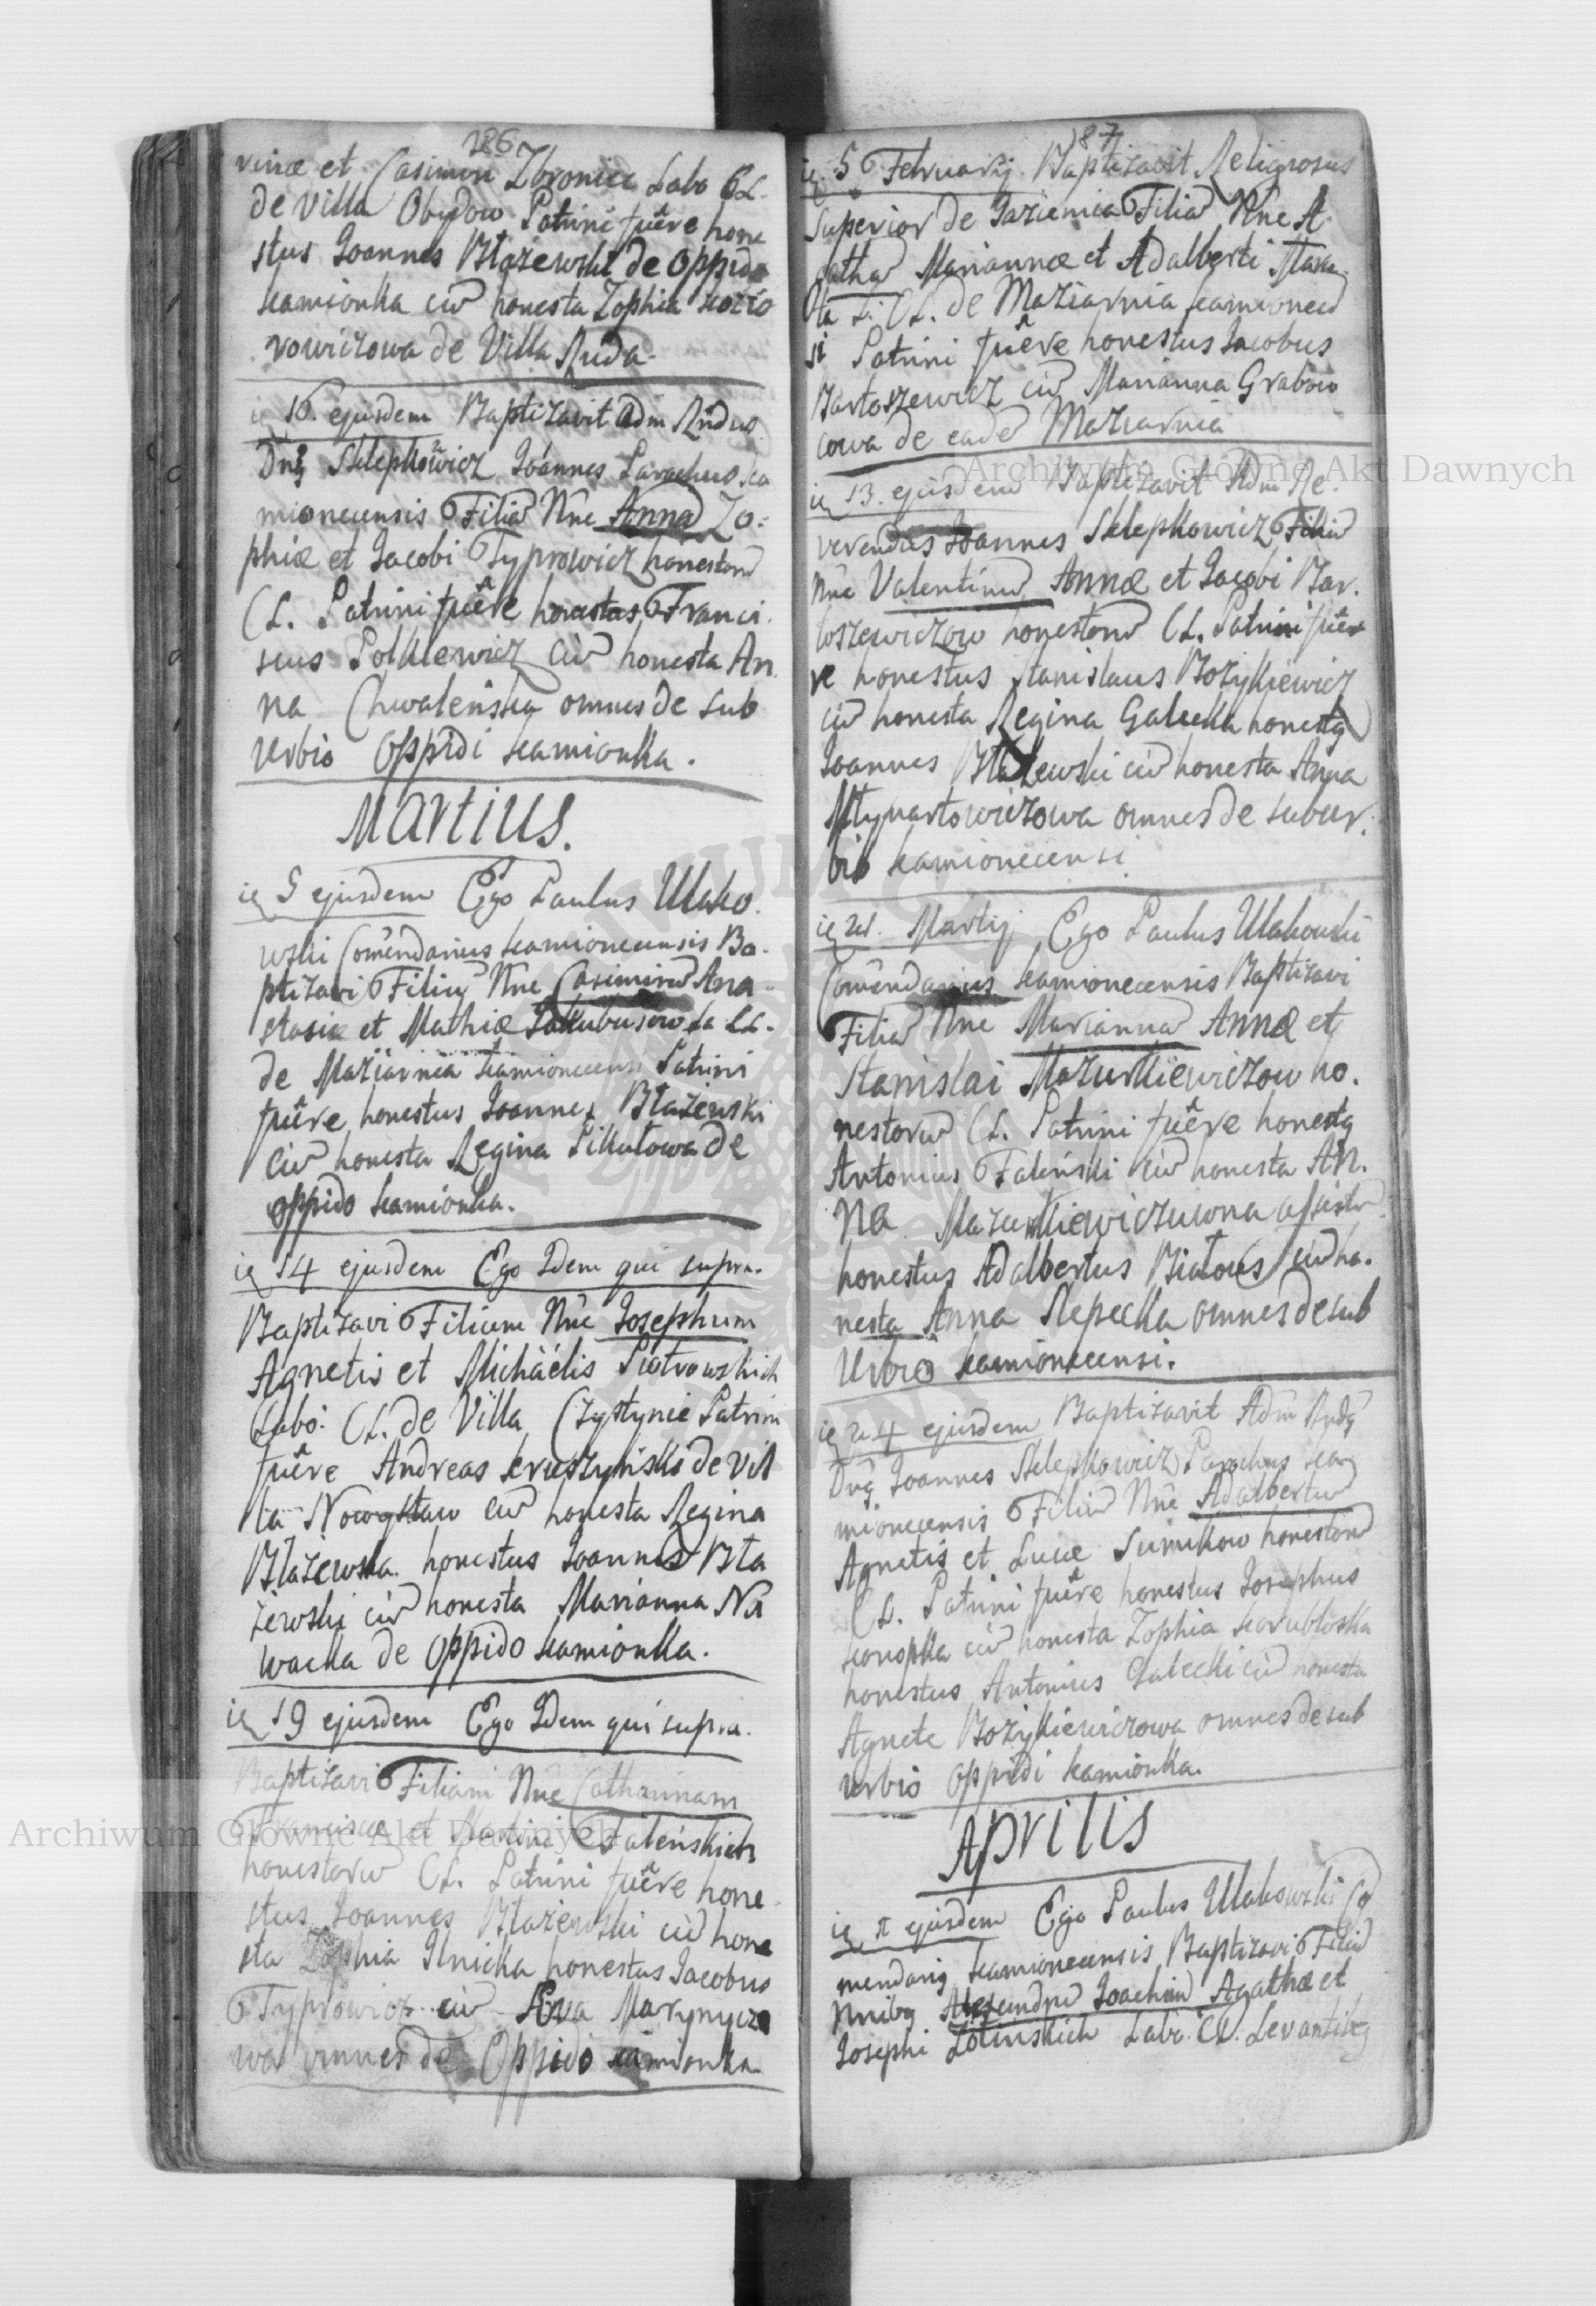 186
rinæ et Casimiri Zbroniec Labo CL.
de Villa Obydow Patrini fuêre hone
stus Joannes Błażewski de Oppido
Kamionka cu͠ honesta Zophia Kozio
rowiczowa de Villa Ruda.
16. ejusdem Baptizavit Adm Rndus
Dn9 Sklepkowicz Joannes Parochus Ka
mionecensis Filia͠ Nne Anna͠ Zo=
phiæ et Jacobi Typrowicz honestoru͠
CL. Patrini fuêre honestus Franci
scus Polkiewicz cu͠ honesta An
na Chwaleńska omnes de sub
urbio Oppidi Kamionka.
Martius.
5 ejusdem Ego Paulus Ulako
wski Com̃endarius Kamionecensis Ba-
ptizavi Filiu͠ Nne Casimiru͠ Ana-
stasiæ et Mathiæ Jakubusiow La CL.
de Maziarnia Kamionecensi Patrini
fuêre honestus Joannes Błażewski
cu͠ honesta Regina Pikułowa de
oppido Kamionka.
14 ejusdem Ego Idem qui supra.
Baptizavi Filium Nne Josephum
Agnetis et Michäelis Piotrowskich
Labo: CL. de Villa Czystynie Patrini
fuêre Andreas Kruszyński de Vil
la Nowystaw cu͠ honesta Regina
Błażewska honestus Joannes Bła
żewski cu͠ honesta Marianna No
wacka de Oppido Kamionka.
19 ejusdem Ego Idem qui supra.
Baptizavi Filiam Nne Catharinam
Franciscæ et Martini Faleńskich
honestoru͠ CL. Patrini fuêre hone
stus Joannes Błażewski cu͠ hone
sta Zophia Ilnicka honestus Jacobus
Typrowicz cu͠ Eva Marynycz
wa omnes de Oppido Kamionka
187
5 Februarij Baptizavit Religiosus
Superior de Jazienica Filia͠ Nne A
gatha͠ Mariannæ et Adalberti
La CL. de Maziarnia Kamionecen
si Patrini fuêre honestus Jacobus
Bartoszewicz cu͠ Marianna Grabow
cowa de eade͠ Maziarnia
13. ejusdem Baptizavit Adm Re
verendus Joannes Sklepkowicz Filiu͠
Nne Valentinu͠ Annæ et Jacobi Bar.
toszewiczow honestoru͠ CL. Patrini fuê
re honestus Stanislaus Bożykiewicz
cu͠ honesta Regina Galecka honest9
Joannes Błażewski cu͠ honesta Anna
Młynartowiczowa omnes de subur.
bio Kamionecensi.
21. Martij Ego Paulus Ulakowski
Com̃endarius Kamionecensis Baptizavi
Filia͠ Nne Marianna͠ Annæ et
Stanislai Mazurkiewiczow ho.
nestoru͠ CL. Patrini fuêre honest9
Antonius Faleński cu͠ honesta An.
na Mazurkiewiczuwna assistu͠
honestus Adalbertus Białous cu͠ ho.
nesta Anna Repecka omnes de sub
Urbio Kamionecensi.
24 ejusdem Baptizavit Adm Rnd9
Dn9 Joannes Sklepkowicz Parochus Ka
mionecensis Filiu͠ Nne Adalbertu͠
Agnetis et Lucæ Sumikow honestoru͠
CL. Patrini fuêre honestus Josephus
Konopka cu͠ honesta Zophia
honestus Antonius Galecki cu͠ honesta
Agnete Bożykiewiczowa omnes de sub
urbio Oppidi Kamionka.
Aprilis
ejusdem Ego Paulus Ulakowski Co
mendari9 Kamionecensis Baptizavi Filiu͠
Nnib9 Alexandru͠ Joachim͠ Agathæ et
Josephi Zolińskich Labo. CL. Levantib9
Archiwum Główne Akt Dawnych
Archiwum Główne Akt Dawnych